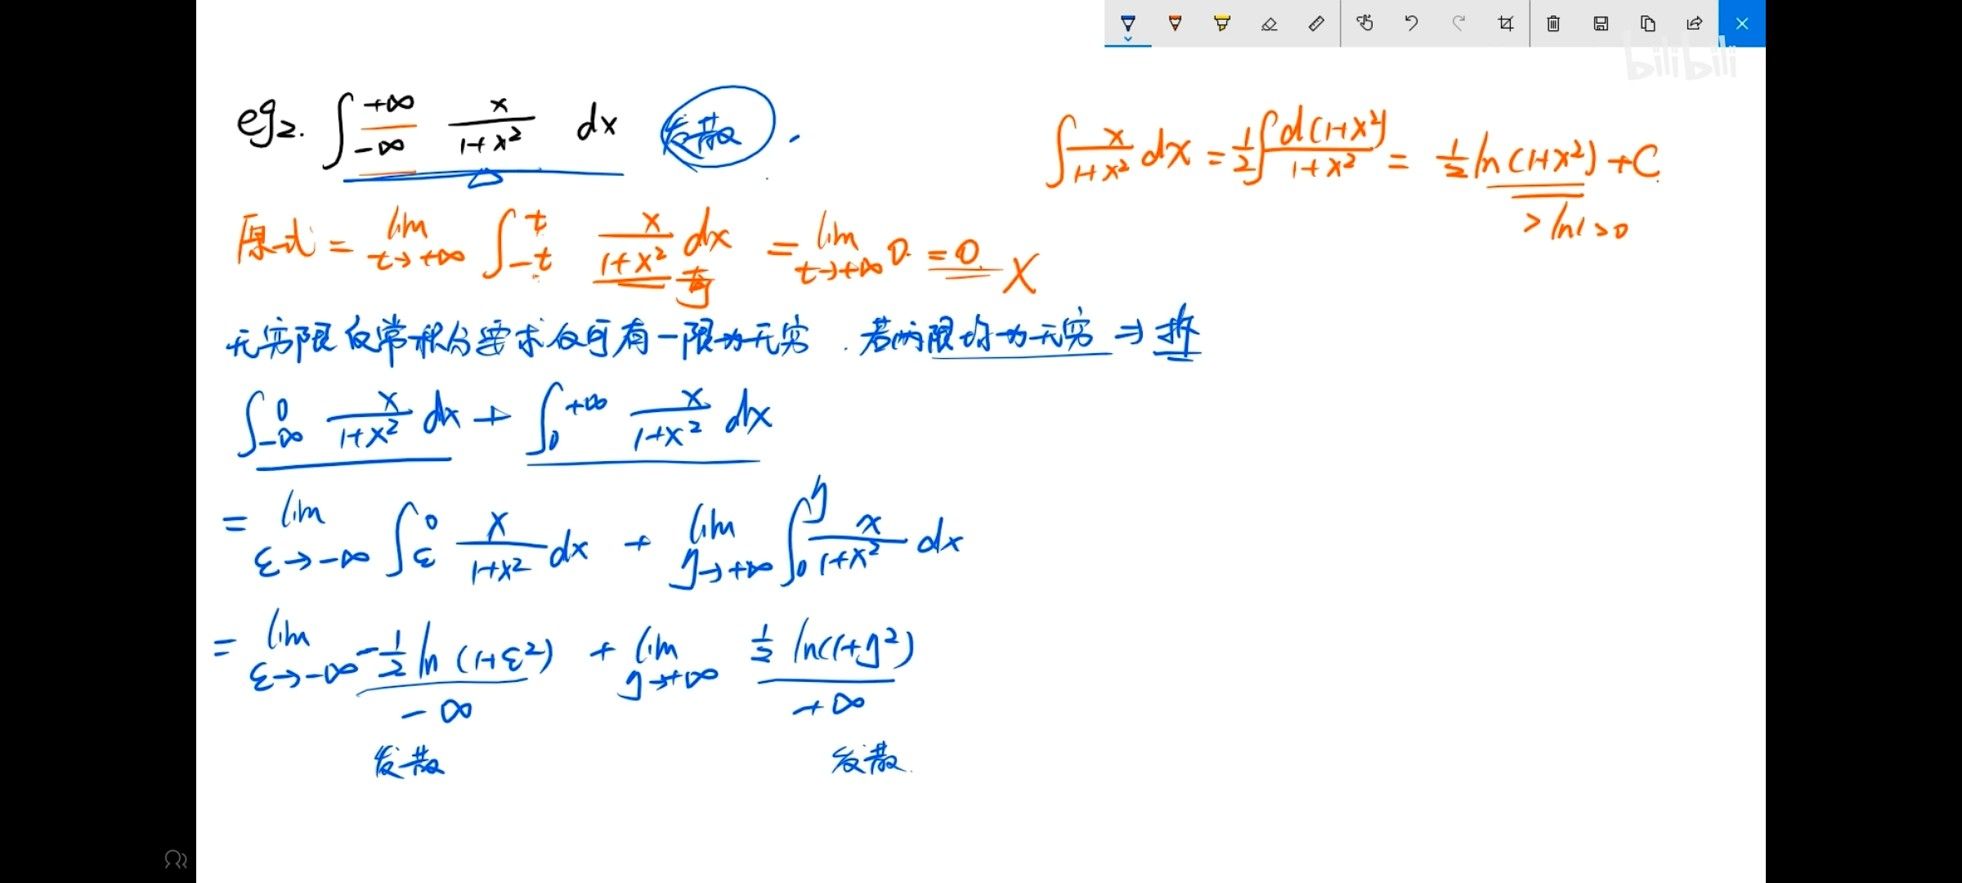 bilibili
eg2. ∫_{-∞}^{+∞} x/(1+x²) dx 发散.
∫ x/(1+x²) dx = 1/2 ∫ d(1+x²)/(1+x²) = 1/2 ln(1+x²) + C
> ln1 > 0
原式 = lim_{t→+∞} ∫_{-t}^{t} x/(1+x²) dx = lim_{t→+∞} 0. = 0. X
奇
无穷限反常积分要求仅可有一限为无穷. 若两限均为无穷 ⇒ 拆
∫_{-∞}^{0} x/(1+x²) dx + ∫_{0}^{+∞} x/(1+x²) dx
= lim_{ε→-∞} ∫_{ε}^{0} x/(1+x²) dx + lim_{y→+∞} ∫_{0}^{y} x/(1+x²) dx
= lim_{ε→-∞} -1/2 ln(1+ε²) + lim_{y→+∞} 1/2 ln(1+y²)
-∞ +∞
发散 发散.